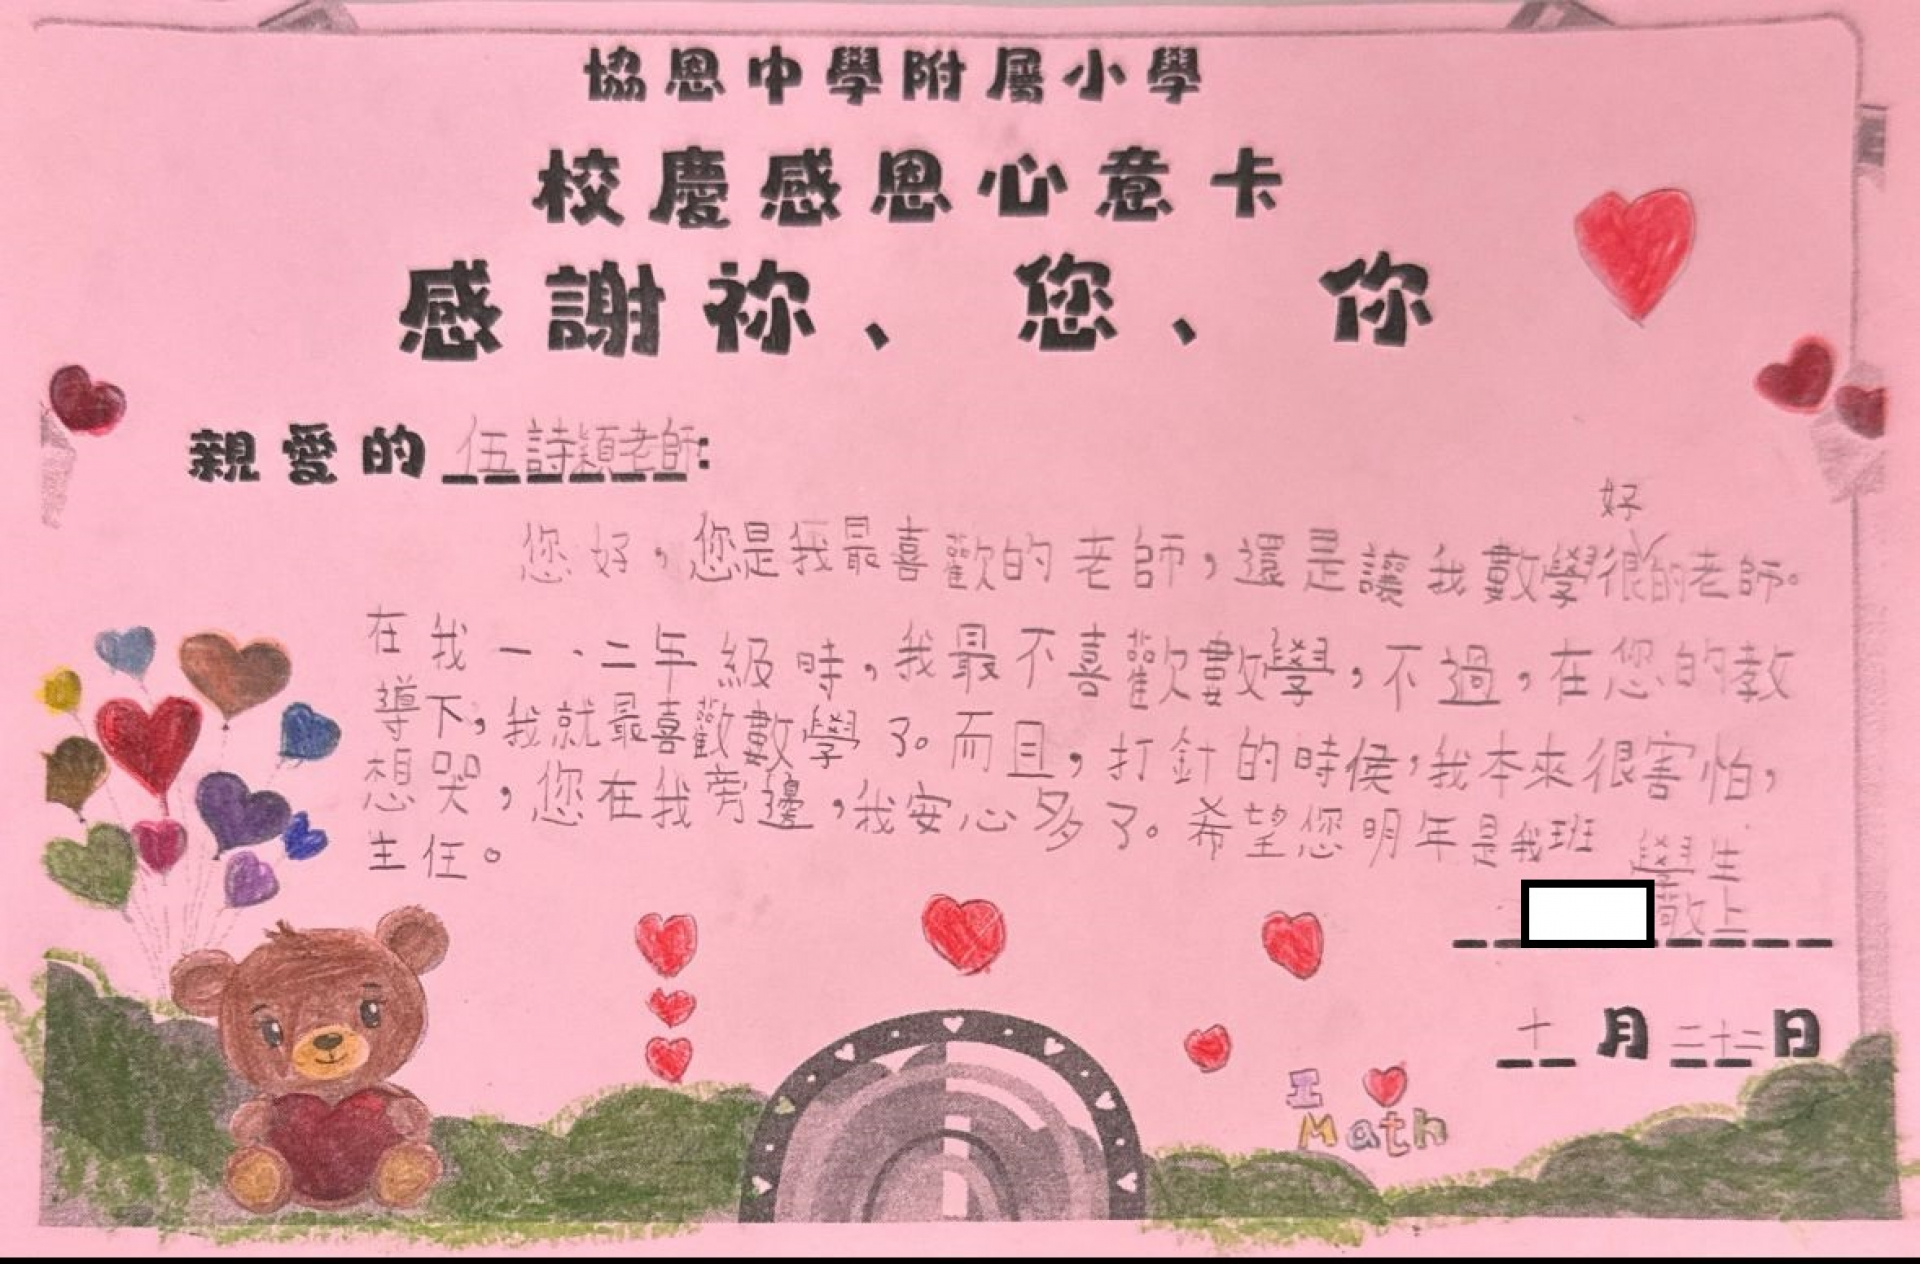 協恩中學附屬小學
校慶感恩心意卡
感謝祢、您、你
親愛的伍詩穎老師:
好
您好，您是我最喜歡的老師，還是讓我數學很的老師。
在我一、二年級時，我最不喜歡數學，不過，在您的教
導下，我就最喜歡數學了。而且，打針的時侯，我本來很害怕，
想哭，您在我旁邊，我安心多了。希望您明年是我班
主任。
學生
敬上
十月二十二日
I
Math